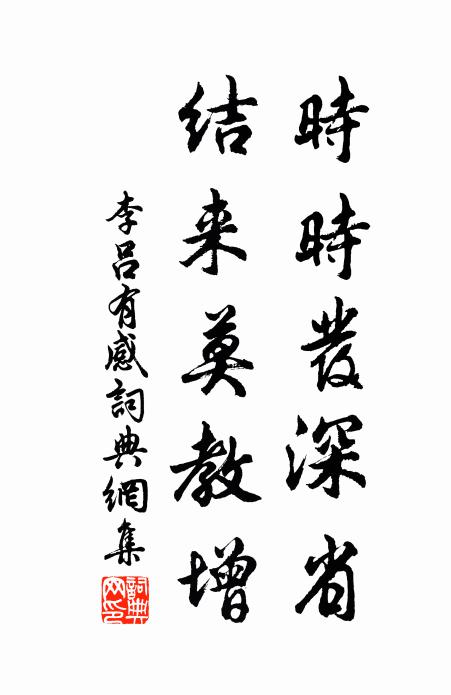 時時發深省
結来莫教增
李呂有感詞典網集
詞典網印